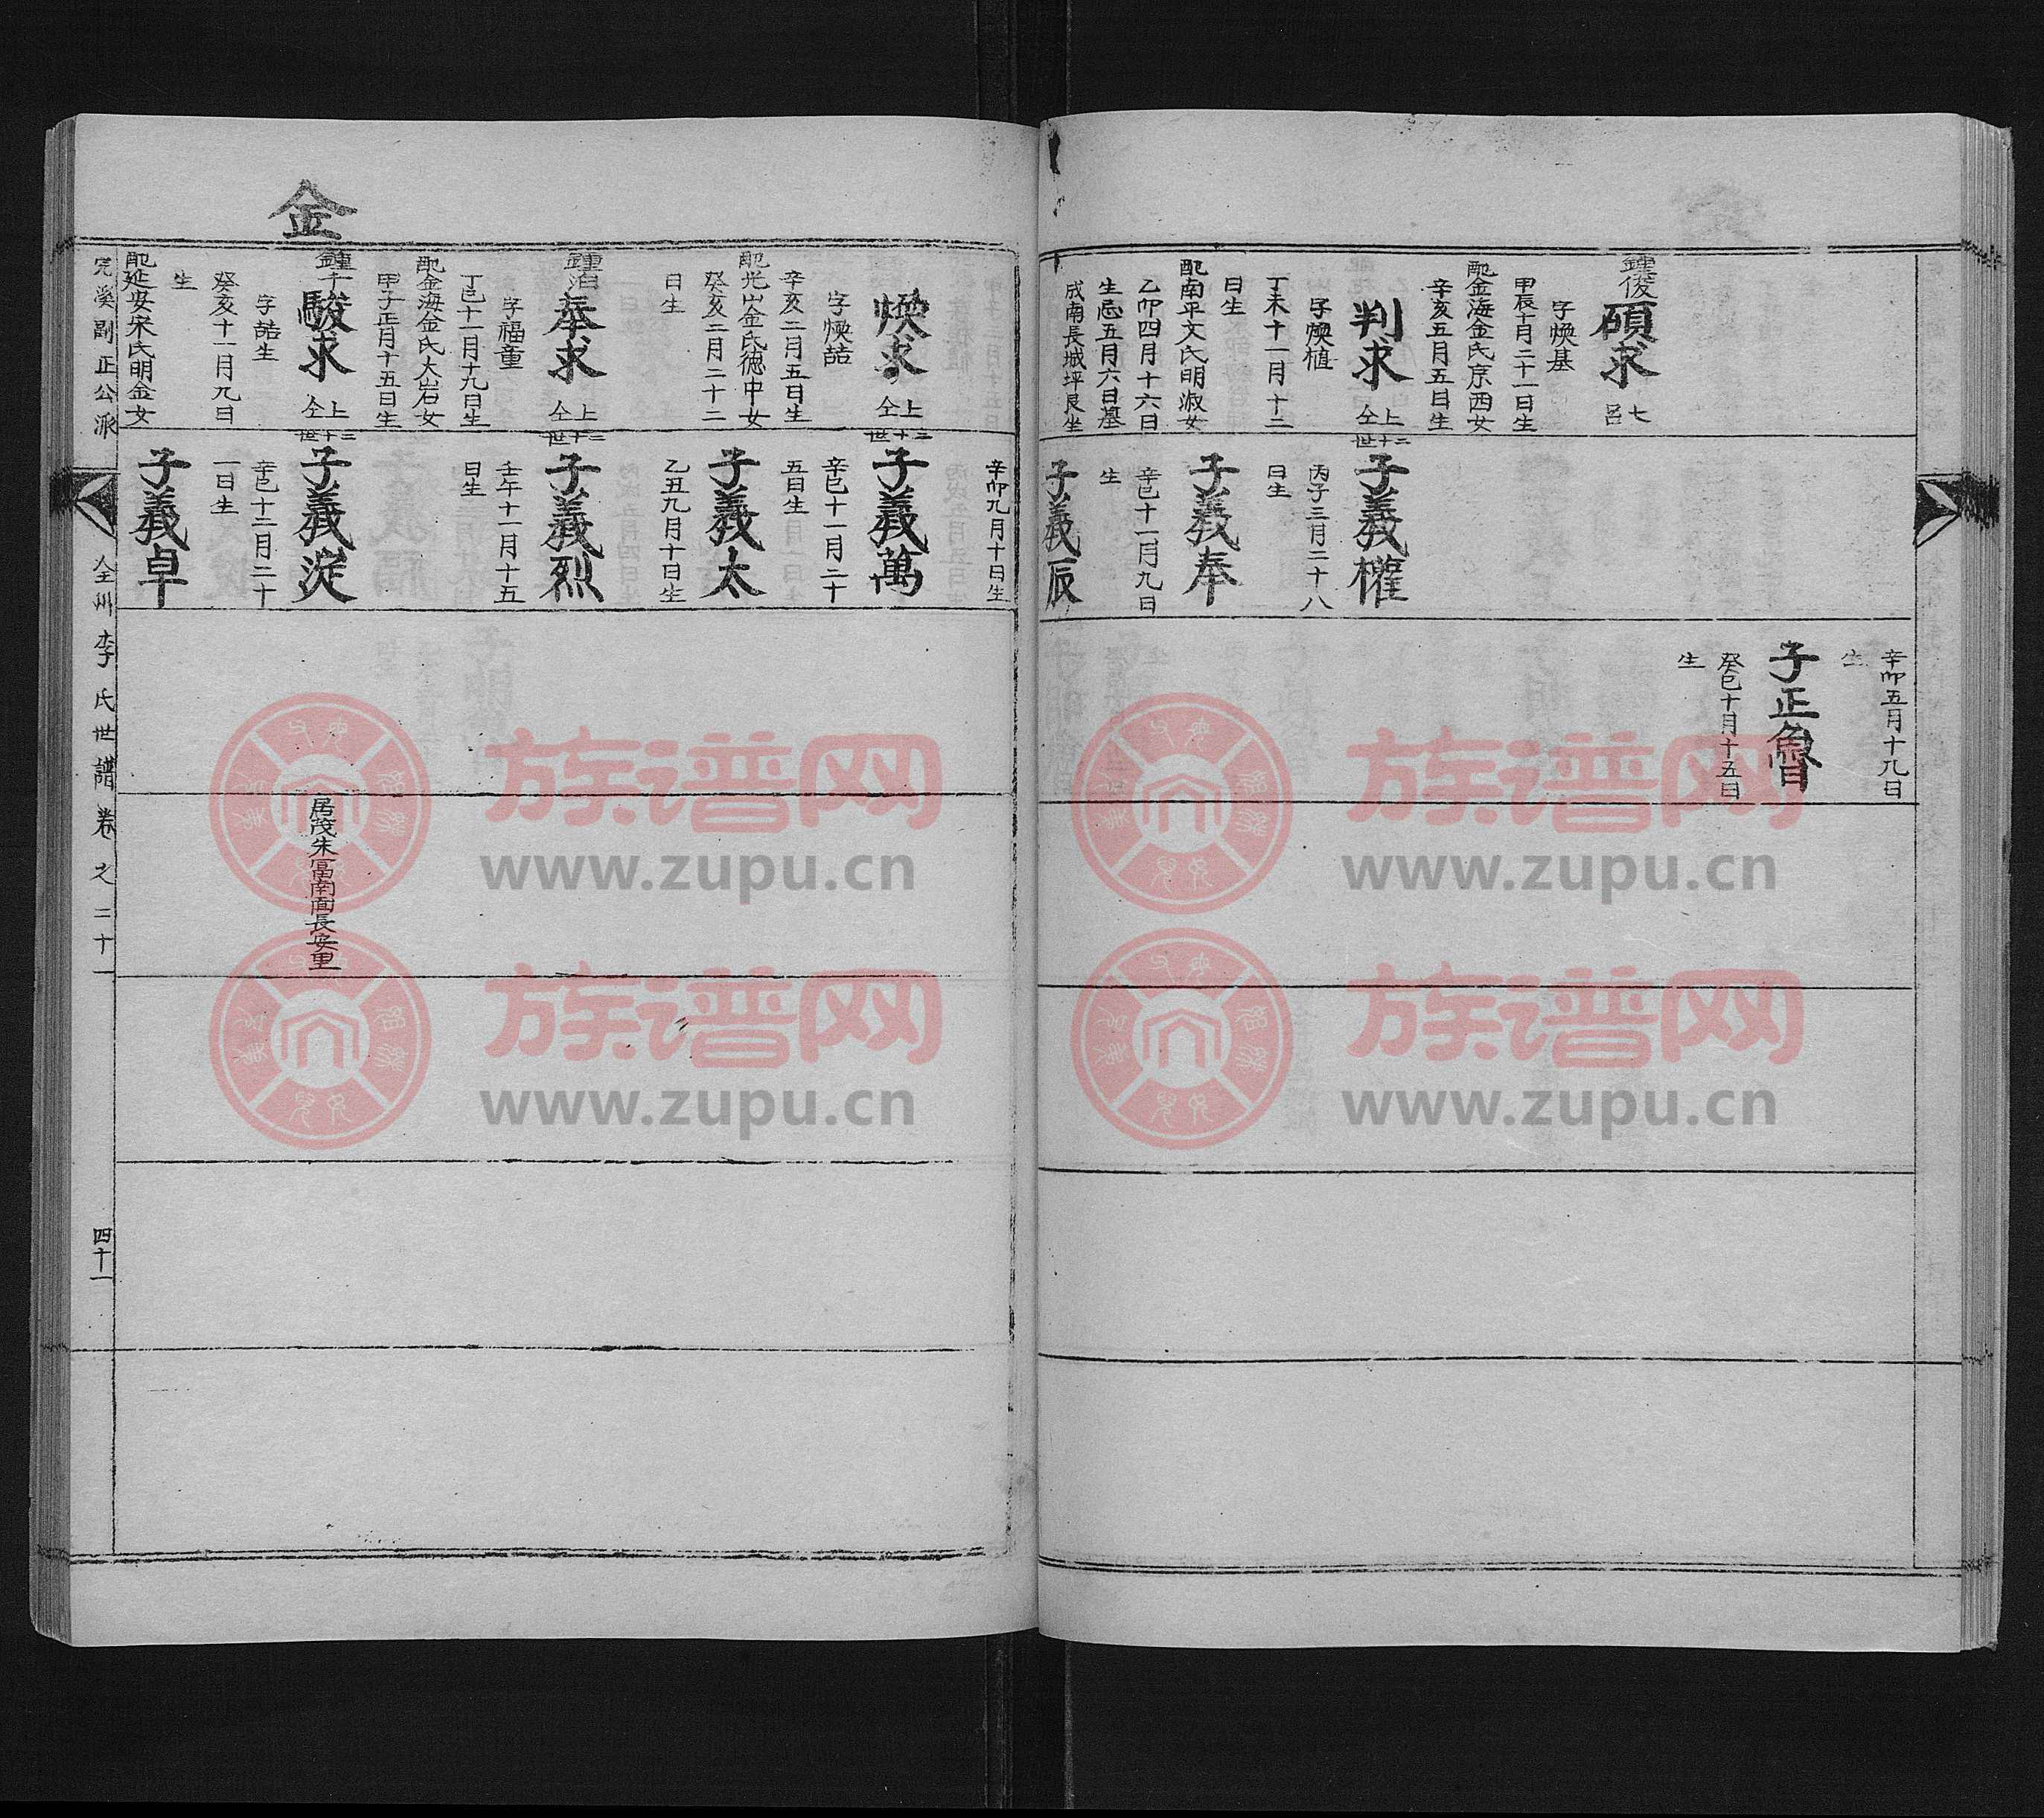 鍾俊
碩求
七
呂
字煥基
甲辰十月二十一日生
配金海金氏京西女
辛亥五月五日生
判求
上仝
字煥植
丁未十一月十二
日生
配南平文氏明淑女
乙卯四月十六日
生忌五月六日墓
成南長城坪艮坐
二十二世
子義權
丙子三月二十八
日生
子義奉
辛巳十一月九日
生
子義辰
辛卯五月十九日
生
子正魯
癸巳十月十五日
生
金
煥求
上仝
字煥喆
辛亥二月五日生
配光山金氏德中女
癸亥二月二十二
日生
鍾
奉求
上仝
字福童
丁巳十一月十九日生
配金海金氏大岩女
甲子正月十五日生
鍾千
駿求
上仝
字喆生
癸亥十一月九日
生
配延安宋氏明金女
辛卯九月十日生
二十二世
子義萬
辛巳十一月二十
五日生
子義太
乙丑九月十日生
二十二世
子義烈
壬午十一月十五
日生
二十二世
子義淀
辛巳十二月二十
一日生
子義卓
居茂朱富南面長安里
完溪副正公派
全州李氏世譜卷之二十一
四十一
族谱网
www.zupu.cn
族谱网
www.zupu.cn
族谱网
www.zupu.cn
族谱网
www.zupu.cn